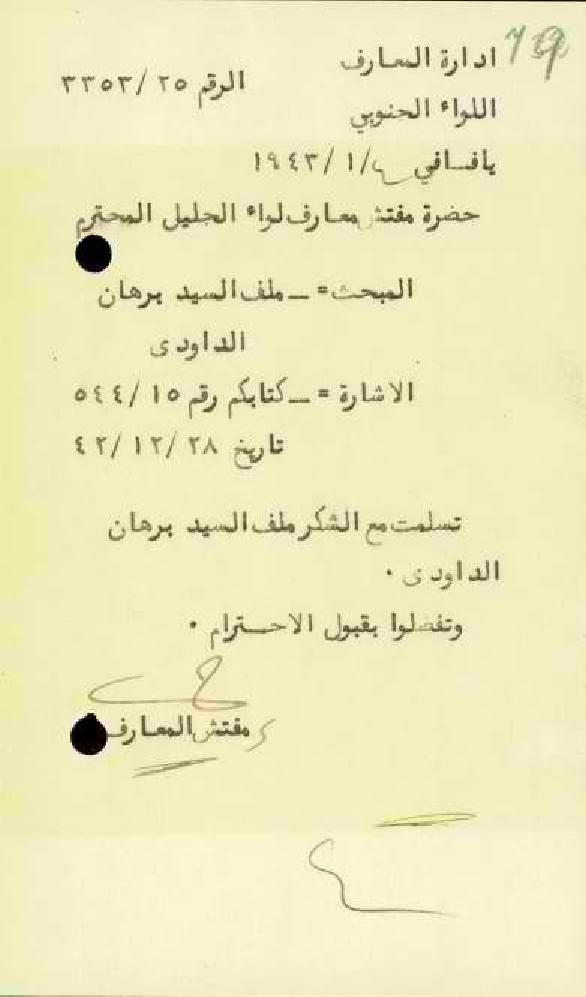 ادارة المعارف
الرقم ٢٥/ ٣٣٥٣
اللواء الجنوبي
يافا في /١/ ١٩٤٣
حضرة مفتش معارف لواء الجليل المحترم
المبحث = ــ ملف السيد برهان
الداودى
الاشارة = ــ كتابكم رقم ١٥/ ٥٤٤
تاريخ ٢٨/ ١٢/ ٤٢
تسلمت مع الشكر ملف السيد برهان
الداودى ٠
وتفضلوا بقبول الاحترام ٠
مفتش المعارف